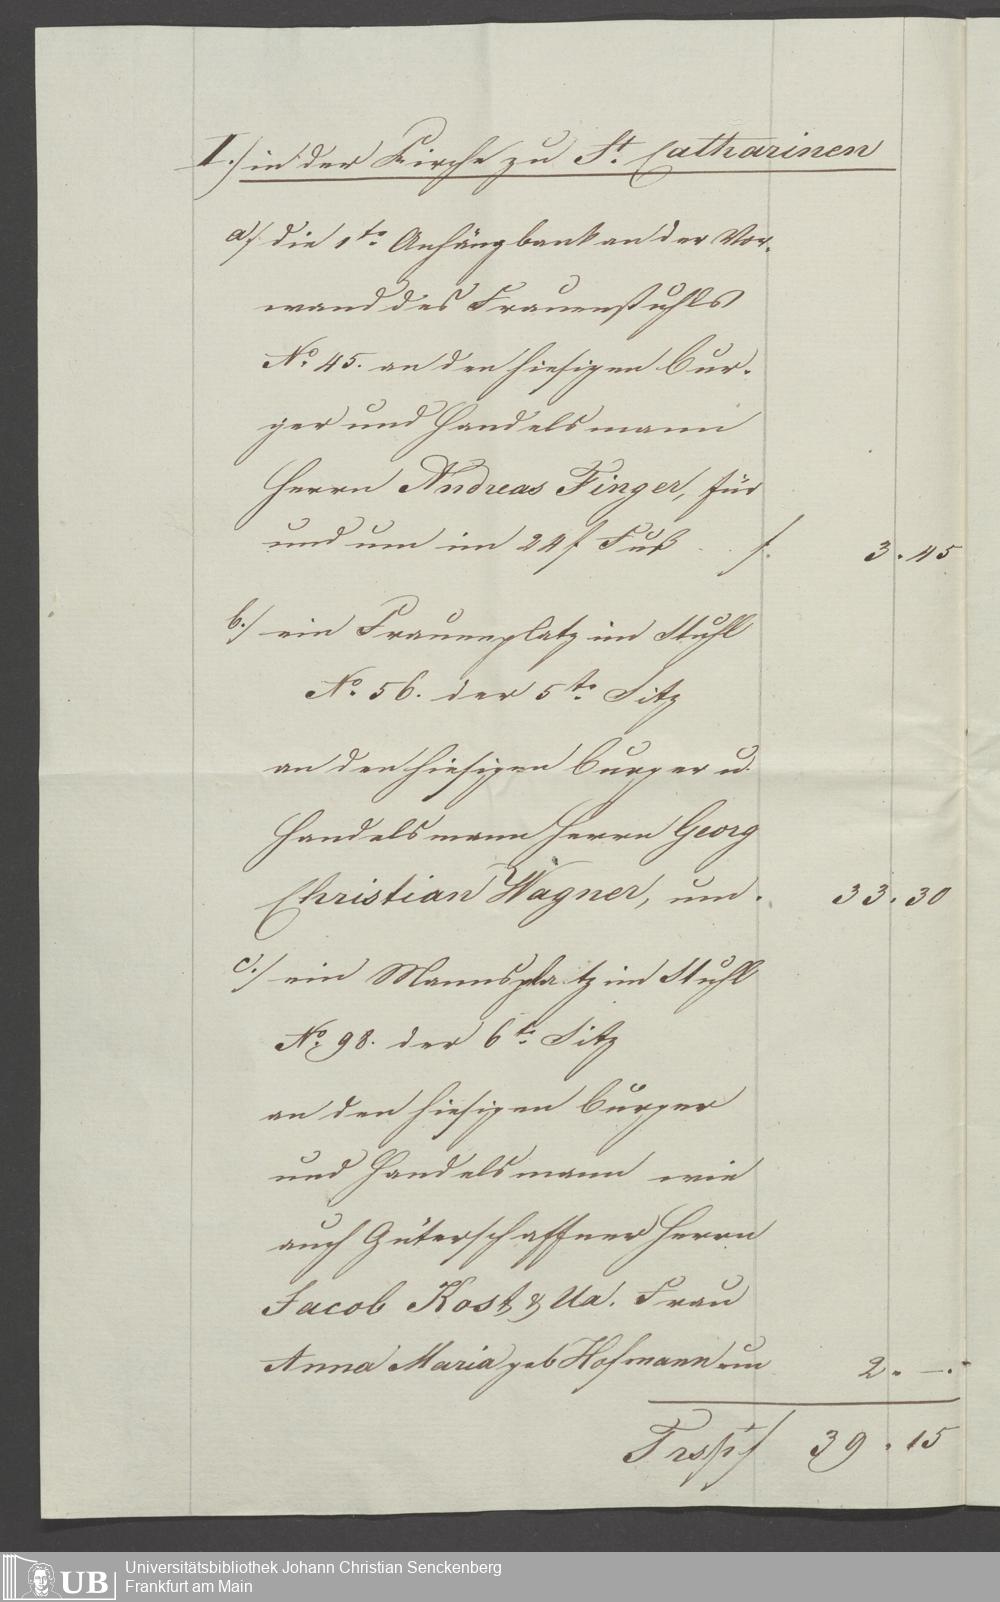 I.) in der Kirche zu St. Catharinen
a). die 1te. Anhängbank an der Vor-
wand des Frauenstuhls
No. 45. an den hiesigen Bur-
ger und Handelsmann
Herrn Andreas Finger, für
und um im 24f Fuß . . f. 3. 45
b.) ein Frauenplatz im Stuhl
No. 56. der 5te. Sitz
an den hiesigen Burger u.
Handelsmann Herrn Georg
Christian Wagner, um. 33. 30
c.) ein Mannsplatz im Stuhl
No. 98. der 6te. Sitz
an den hiesigen Burger
und Handelsmann wie
auch Güterschaffner Herrn
Jacob Kost & Ux. Frau
Anna Maria geb Hofmann um 2. —.
f 39. 15
UB Universitätsbibliothek Johann Christian Senckenberg
Frankfurt am Main